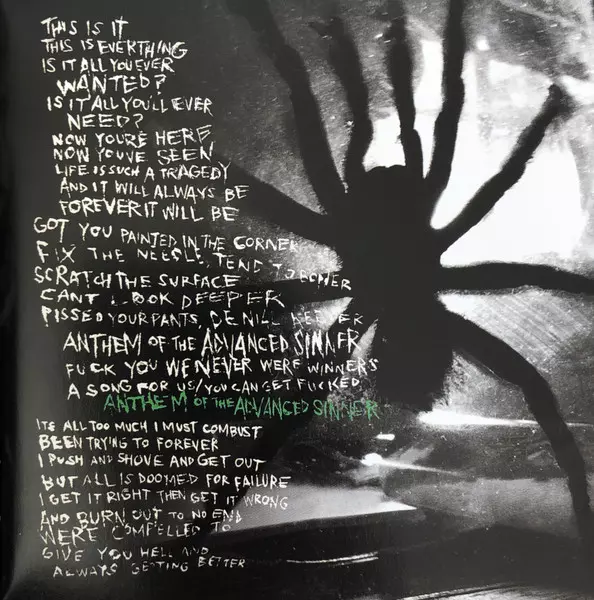 THIS IS IT
THIS IS EVERTHING
IS IT ALL YOU EVER
WANTED?
IS IT ALL YOU'LL EVER
NEED?
NOW YOURE HERE
NOW YOUVE SEEN
LIFE IS SUCH A TRAGEDY
AND IT WILL ALWAYS BE
FOREVER IT WILL BE
GOT YOU PAINTED IN THE CORNER
FIX THE NEEDLE, TEND TO
SCRATCH THE SURFACE
CANT LOOK DEEPER
PISSED YOUR PANTS,
ANTHEM OF THE ADVANCED SINNER
FUCK YOU WE NEVER WERE WINNERS
A SONG FOR US/YOU CAN GET FUCKED
ANTHEM OF THE ADVANCED SINNER
ITS ALL TOO MUCH I MUST COMBUST
BEEN TRYING TO FOREVER
I PUSH AND SHOVE AND GET OUT
BUT ALL IS DOOMED FOR FAILURE
I GET IT RIGHT THEN GET IT WRONG
AND BURN OUT TO NO END
WERE COMPELLED TO
GIVE YOU HELL AND
ALWAYS GETTING BETTER